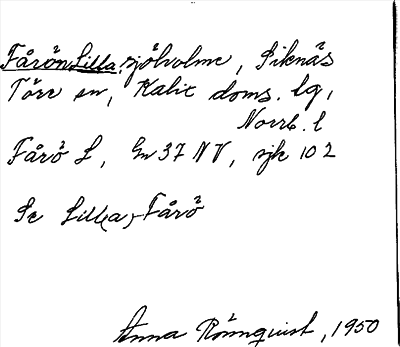 Fårön Lilla, sjöholme, Siknäs
Töre sn, Kalix doms. lg,
Norrb. l
Fårö L, Gn 37 NV, sjk 102
Se Lill(a)-Fårö
Anna Rönnquist, 1950